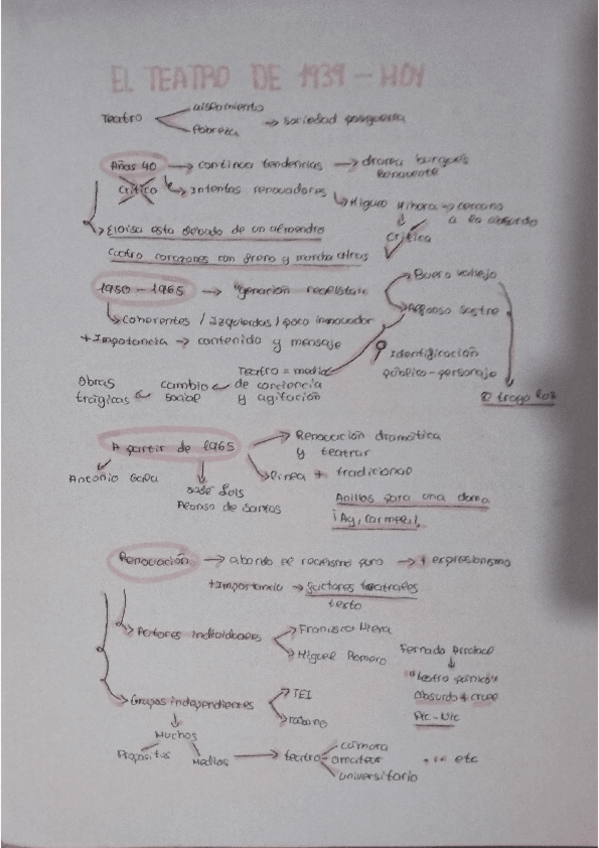 EL TEATRO DE 1939 - HOY
aislamiento
Teatro → sociedad posguerra
Pobreza
Años 40 → continua tendencias → drama burgués
Benavente
Crítico → Intentos renovadores → Miguel Mihura → cercano
a lo absurdo
→ Eloísa está debajo de un almendro
Crítica
Cuatro corazones con freno y marcha atrás
Buero Vallejo
1950 - 1965 → "generación realista"
Alfonso Sastre
→ Coherentes / Izquierdas / poco innovador
+ Importancia → contenido y mensaje
Identificación
público - personaje
Teatro = medio
Obras ← cambio ← de conciencia
trágicas social y agitación
El tragaluz
Renovación dramática
y teatral
A partir de 1965
→ línea + tradicional
Antonio Gala
José Luis
Alonso de Santos
Anillos para una dama
¡Ay, Carmela!
Renovación → abando el realismo puro → + expresionismo
+ Importancia → factores teatrales
texto
→ Autores individuales
Francisco Nieva
Miguel Romero
Fernado Arrabal
"teatro pánico"
absurdo + cruel
Pic-Nic
→ Grupos independientes
TEI
Tábano
Muchos
Propósitos Medios → teatro
cámara
amateur
universitario
etc